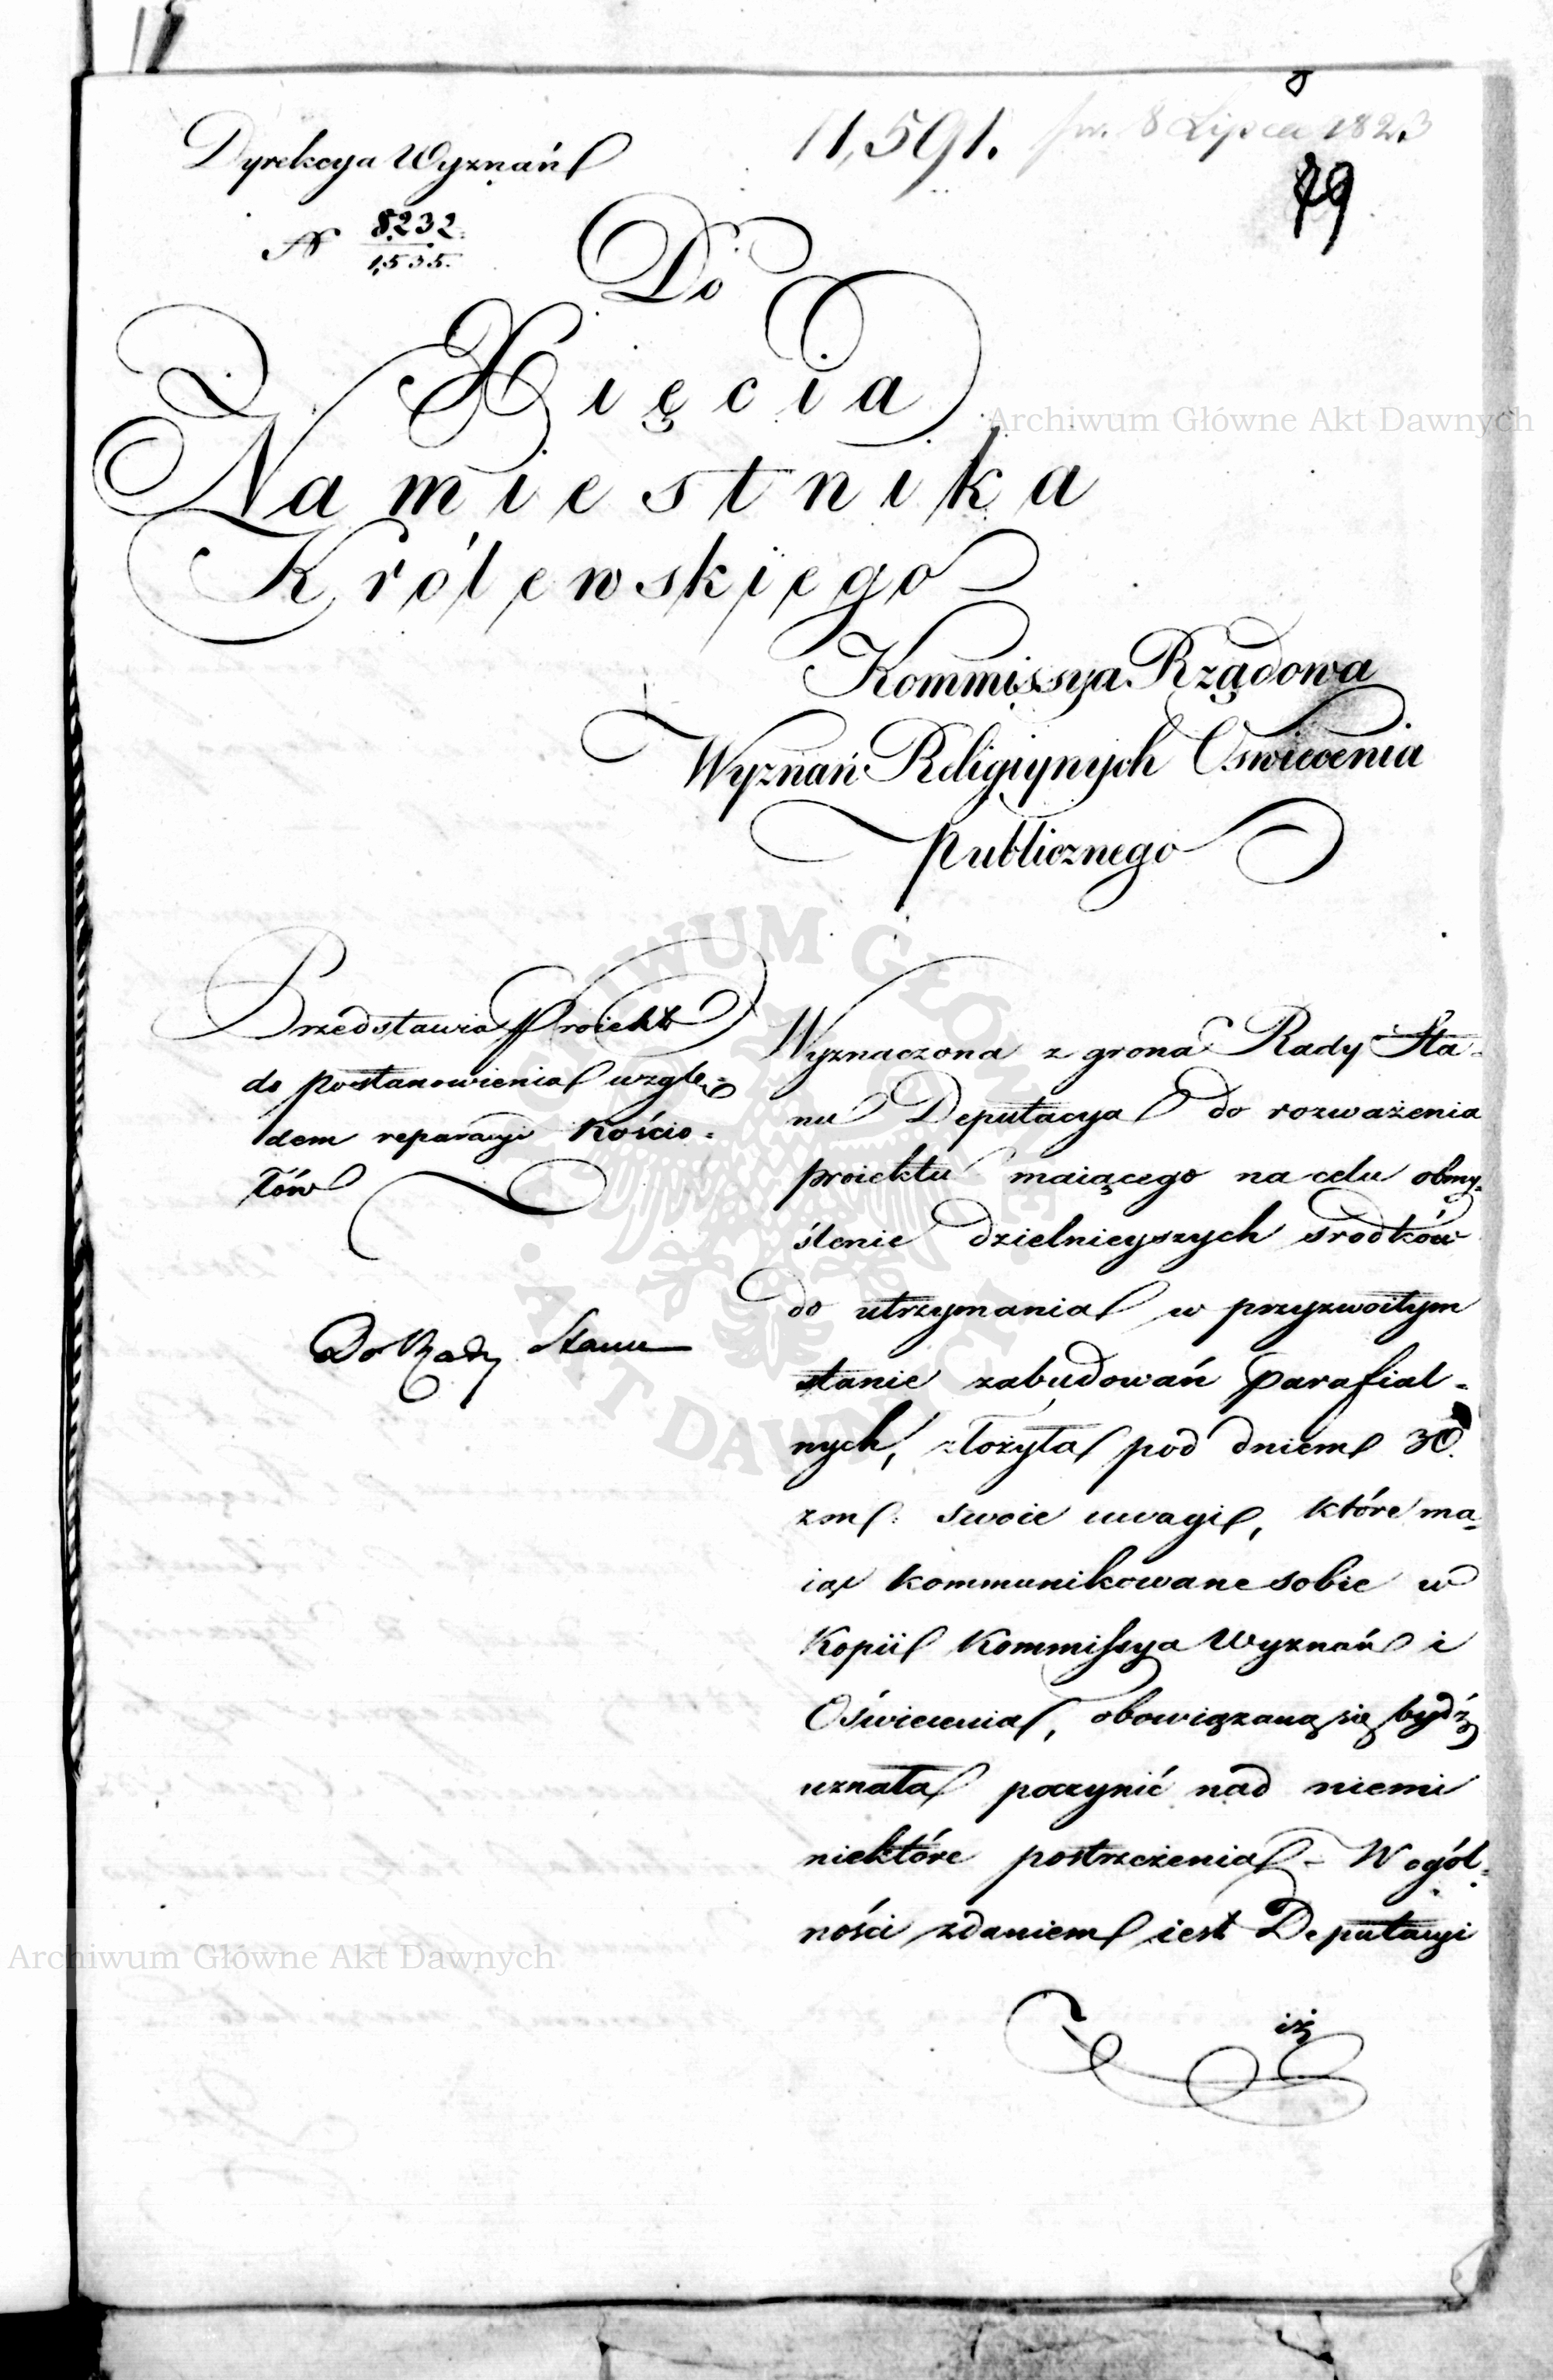 11,591. pr. 8 Lipca 1823
79
Dyrekcya Wyznań
N 8232
1,535.
Do
Xięcia
Namiestnika
Królewskiego
Kommissya Rządowa
Wyznań Religiynych Oswiecenia
publicznego
Przedstawia Proiekt
do postanowienia wzglę=
dem reparacyi Kościo=
łów
Do Rady Stanu
Wyznaczona z grona Rady Sta=
nu Deputacya do rozważenia
proiektu maiącego na celu obmy=
ślenie dzielnieyszych srodków
do utrzymania w przyzwoitym
stanie zabudowań parafial=
nych, złożyła pod dniem 30.
zm: swoie uwagi, które ma=
iąc kommunikowane sobie w
Kopii Kommissya Wyznań i
Oświecenia, obowiązaną się bydź
uznała poczynić nad niemi
niektóre postrzeżenia - W ogól=
ności zdaniem iest Deputacyi
iż
Archiwum Główne Akt Dawnych
Archiwum Główne Akt Dawnych
ARCHIWUM GŁÓWNE AKT DAWNYCH